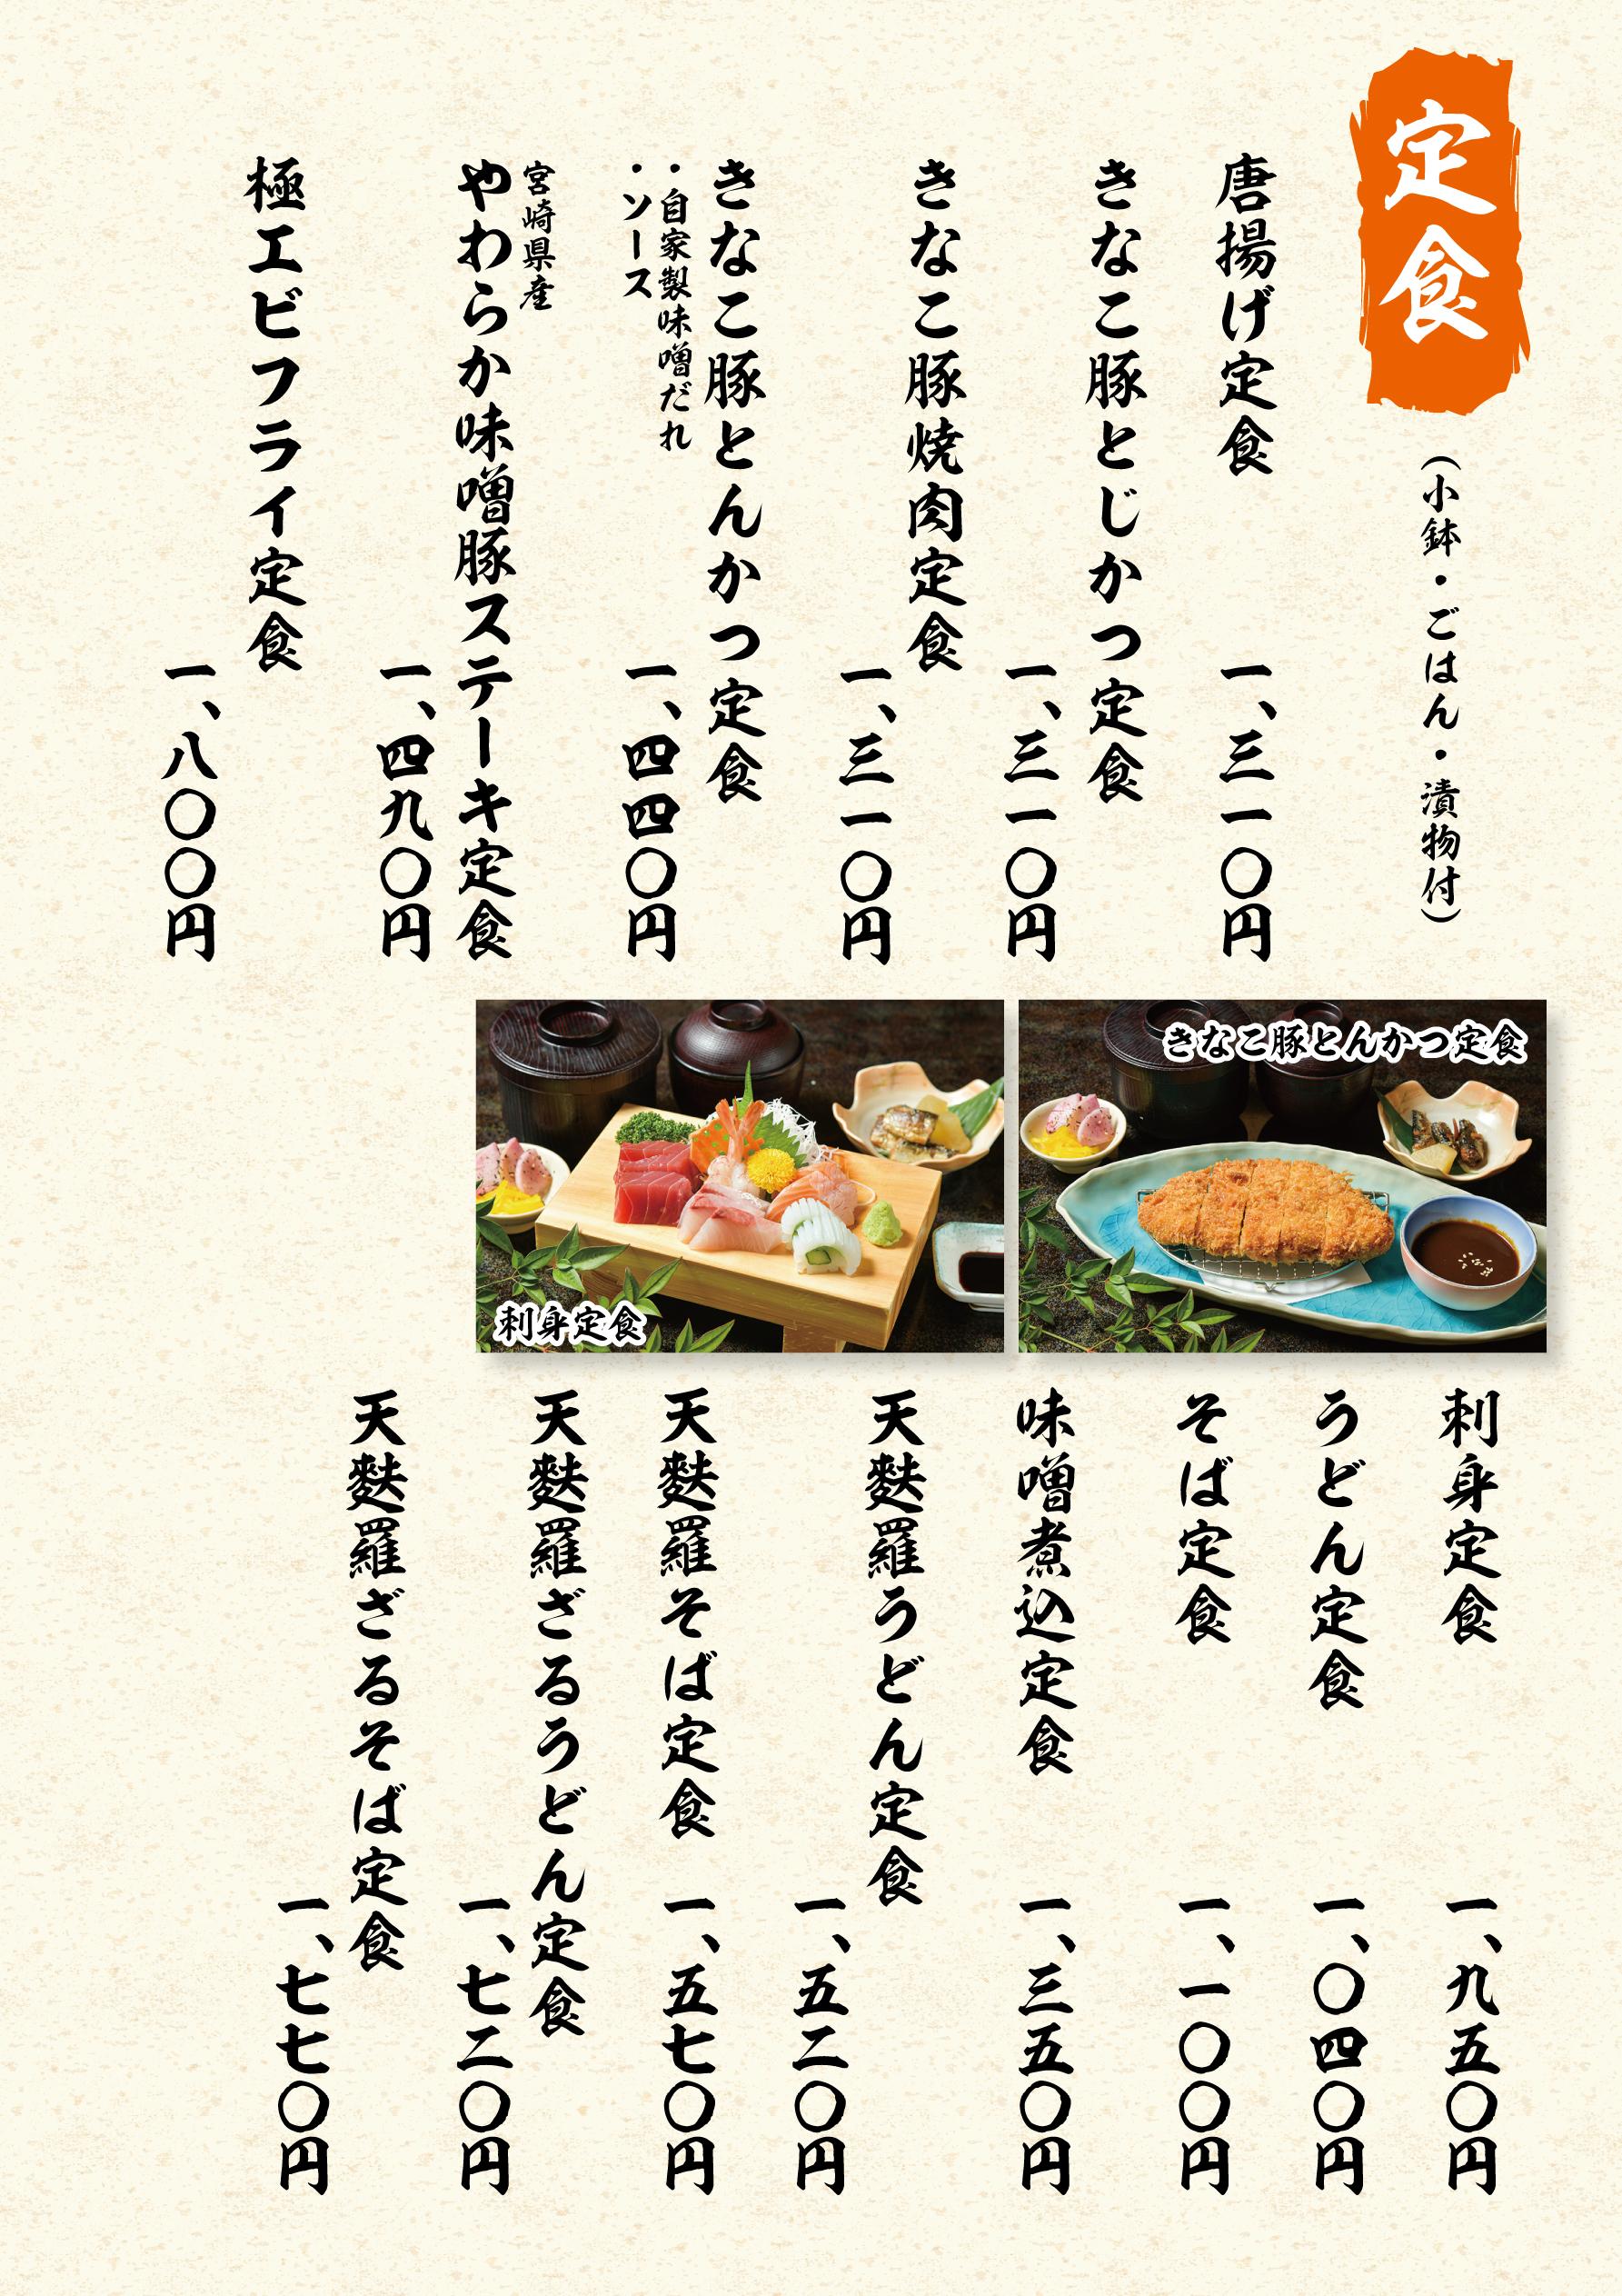 定食
（小鉢・ごはん・漬物付）
唐揚げ定食
一、三一〇円
きなこ豚とじかつ定食
一、三一〇円
きなこ豚焼肉定食
一、三一〇円
きなこ豚とんかつ定食
・自家製味噌だれ
・ソース
一、四四〇円
宮崎県産
やわらか味噌豚ステーキ定食
一、四九〇円
極エビフライ定食
一、八〇〇円
きなこ豚とんかつ定食
刺身定食
刺身定食
一、九五〇円
うどん定食
一、〇四〇円
そば定食
一、一〇〇円
味噌煮込定食
一、三五〇円
天麩羅うどん定食
一、五二〇円
天麩羅そば定食
一、五七〇円
天麩羅ざるうどん定食
一、七二〇円
天麩羅ざるそば定食
一、七七〇円